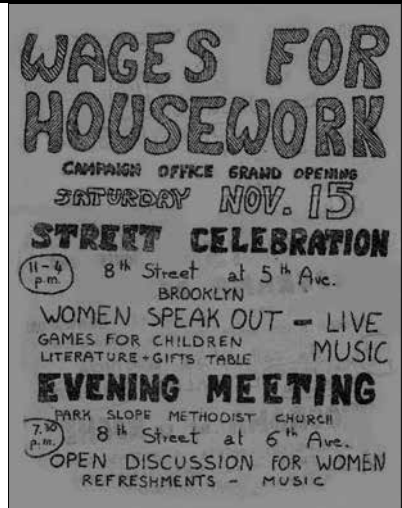 WAGES FOR
HOUSEWORK
CAMPAIGN OFFICE GRAND OPENING
SATURDAY NOV. 15
STREET CELEBRATION
11-4 p.m. 8th Street at 5th Ave.
BROOKLYN
WOMEN SPEAK OUT - LIVE MUSIC
GAMES FOR CHILDREN
LITERATURE + GIFTS TABLE
EVENING MEETING
PARK SLOPE METHODIST CHURCH
7.30 p.m. 8th Street at 6th Ave.
OPEN DISCUSSION FOR WOMEN
REFRESHMENTS - MUSIC